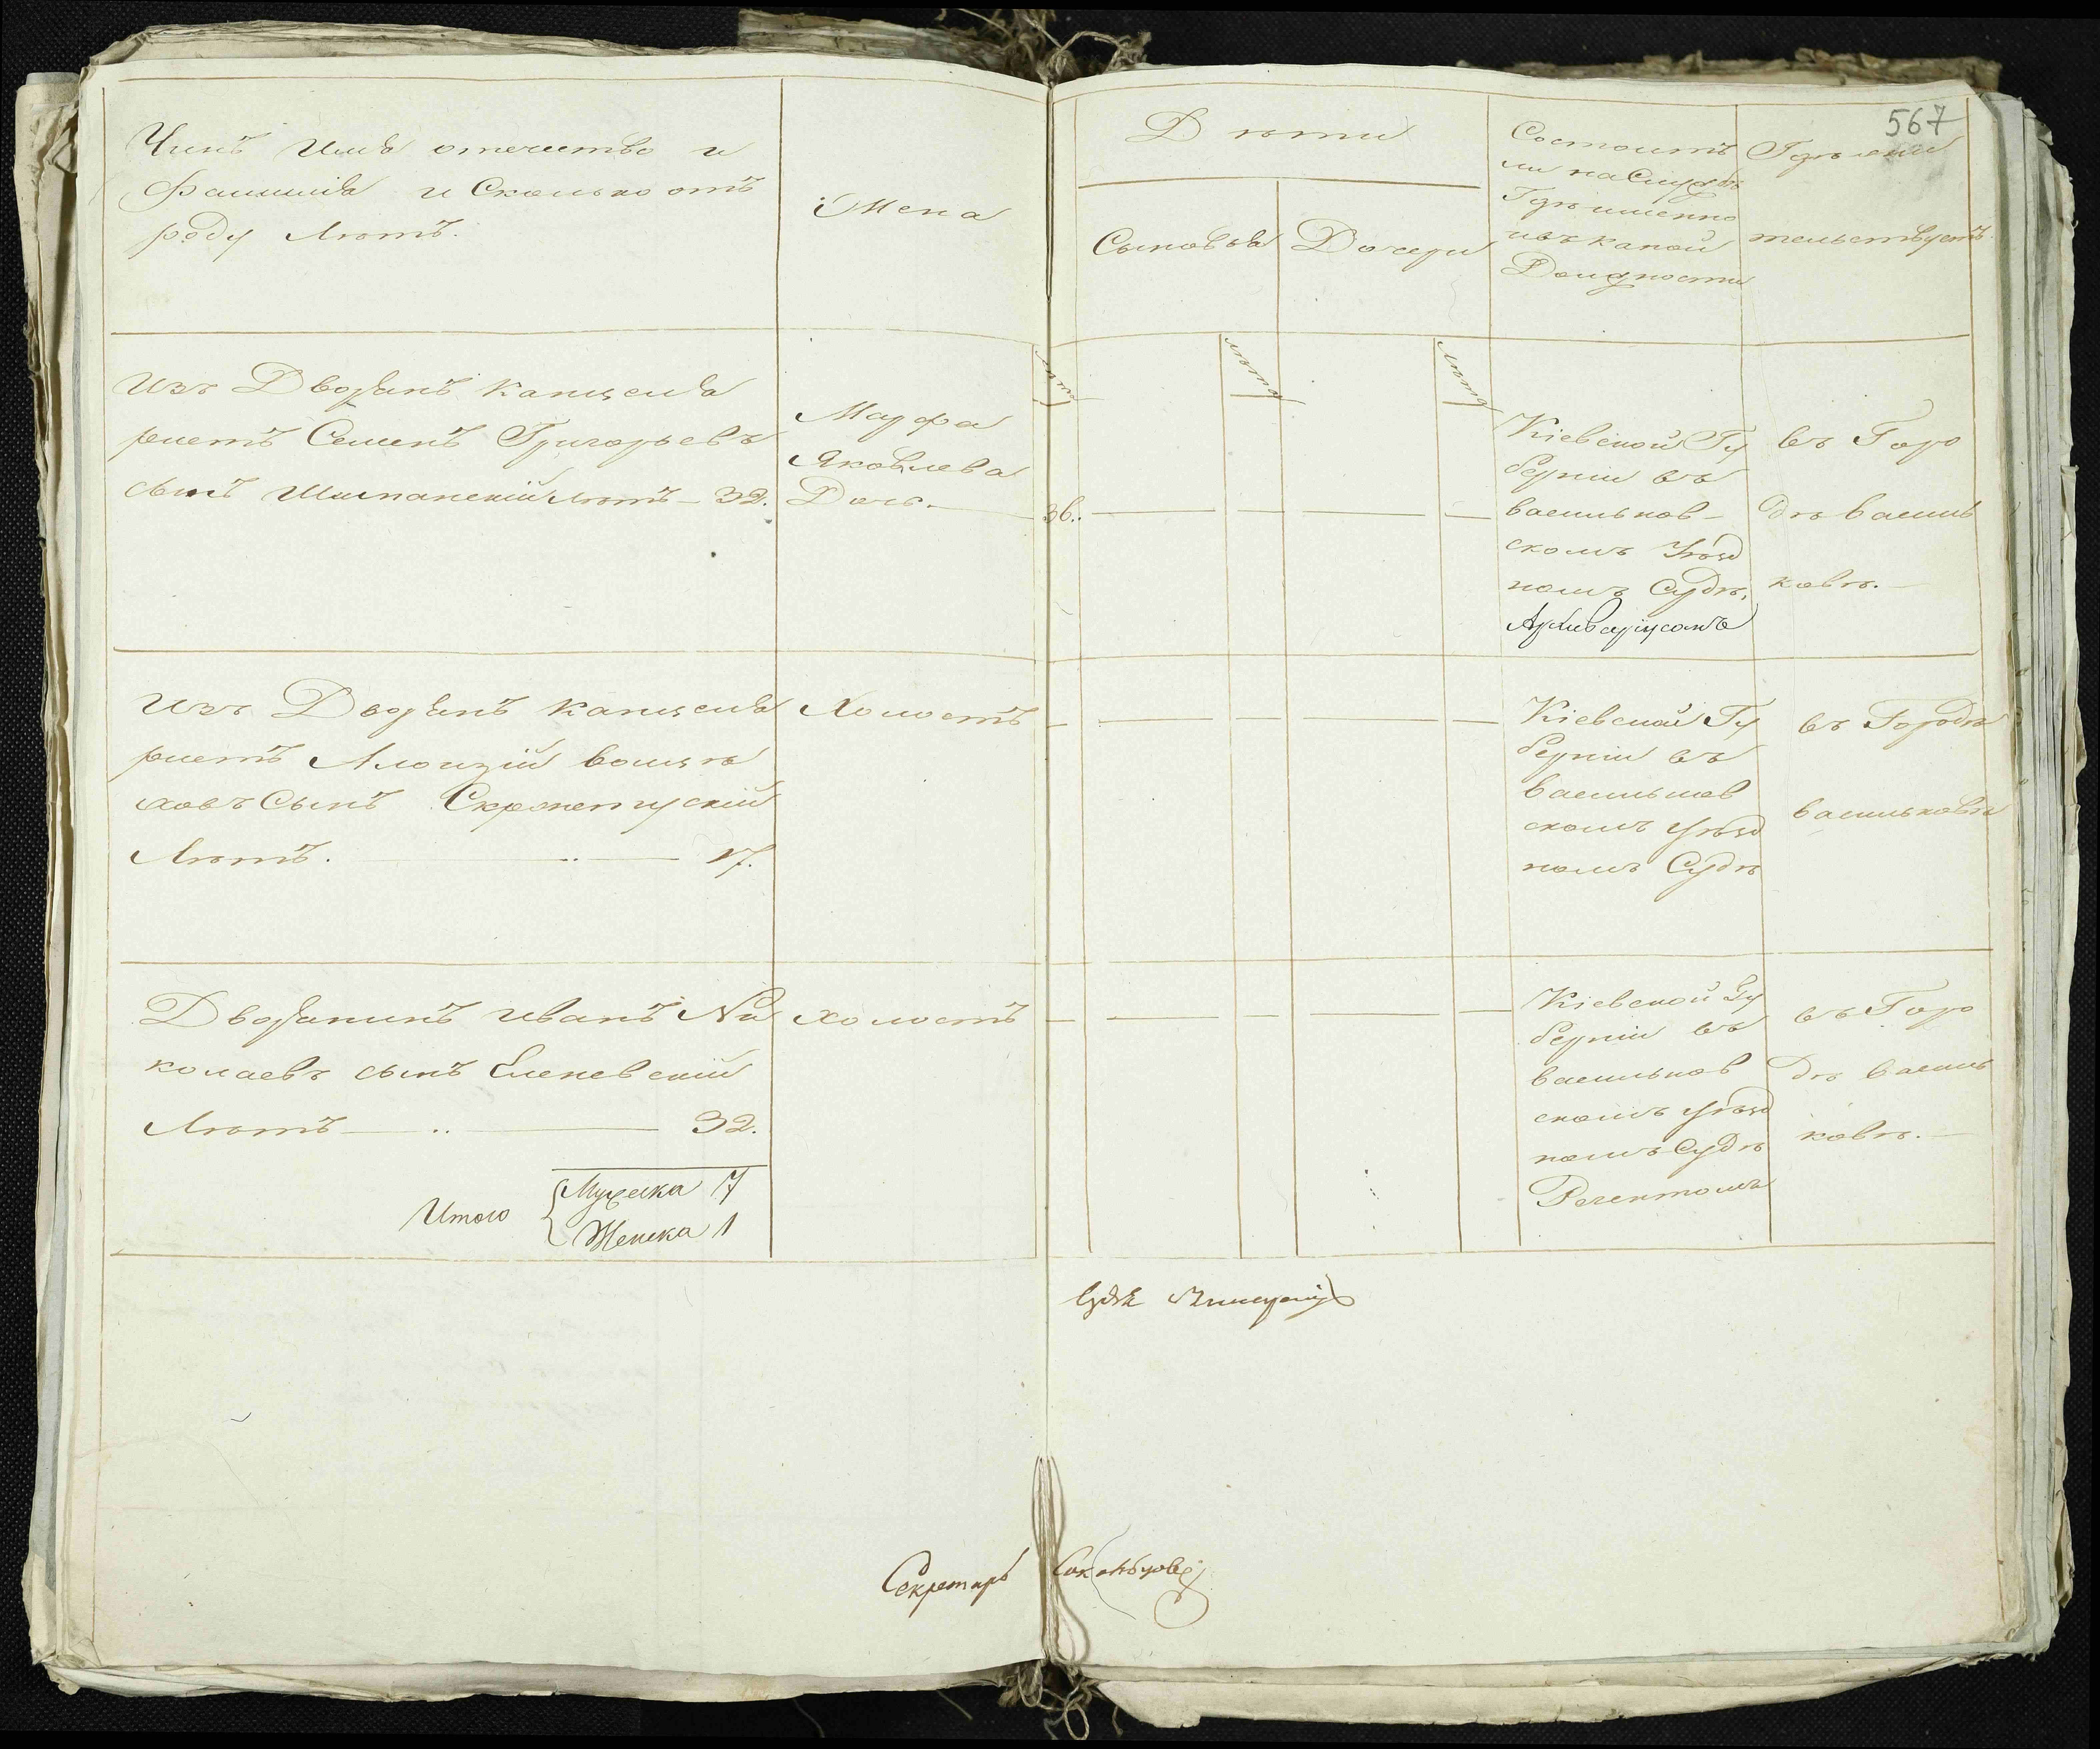 567
Чинъ Имя отечество и
Фамилія и Сколько отъ
роду Лѣтъ.
Жена
Дѣти
Сыновья
Дочери
Состоитъ
ли на Службѣ
Гдѣ именно
ивъ какой
Должности
Гдѣ жи
тельствуетъ
лѣта
лѣта
лѣта
Изъ Дворянъ Канцеля
ристъ Семенъ Григорьевъ
сынъ Шимпанскій лѣтъ — 32.
Марфа
Яковлева
Дочь.
36.
Кіевской Гу
берніи въ
васильков-
скомъ Уѣзд
номъ Судѣ,
Архиваріусомъ
въ Горо
дѣ Василь
ковѣ.
Изъ Дворянъ Канцеля
ристъ Алоизій
сынъ Скржетускій
Лѣтъ. 17.
Холостъ
Кіевской Гу
берніи въ
васильков
скомъ уѣзд
номъ Судѣ
въ Городѣ
васильковѣ
Дворянинъ иванъ Ни
колаевъ сынъ Еленевскій
Лѣтъ 32.
холостъ
Кіевской Гу
берніи въ
васильков
скомъ уѣзд
номъ Судѣ
Регентомъ
въ Горо
дѣ василь
ковѣ.
Итого
Мужеска 7
Женска 1
Секретарь